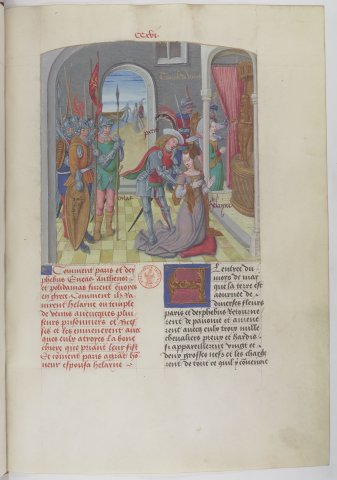 CCxlvi.
paris
helayne
Comment paris et dey
phebus Eneas anthenor
et polidamas furent enuoyez
en grece. Comment ilz ra
uirent helaine ou temple
de venus auecques plu
sieurs prisonniers et nefz
et les emmenerent auec
eulx a troyes La bone
chiere que priant leur fist
et coment paris a grāt ho
neur espousa helayne
A lentree du
moys de mar
que la terre est
aournee de
diuerses fleurs
paris et deyphebus retourne
rent de panonie et amene
rent auecq eulx trois mille
cheualiers preux et hardis
si appareillerent vingt et
deux grosses nefs et les charge
rent de tout ce quil y conuenoit